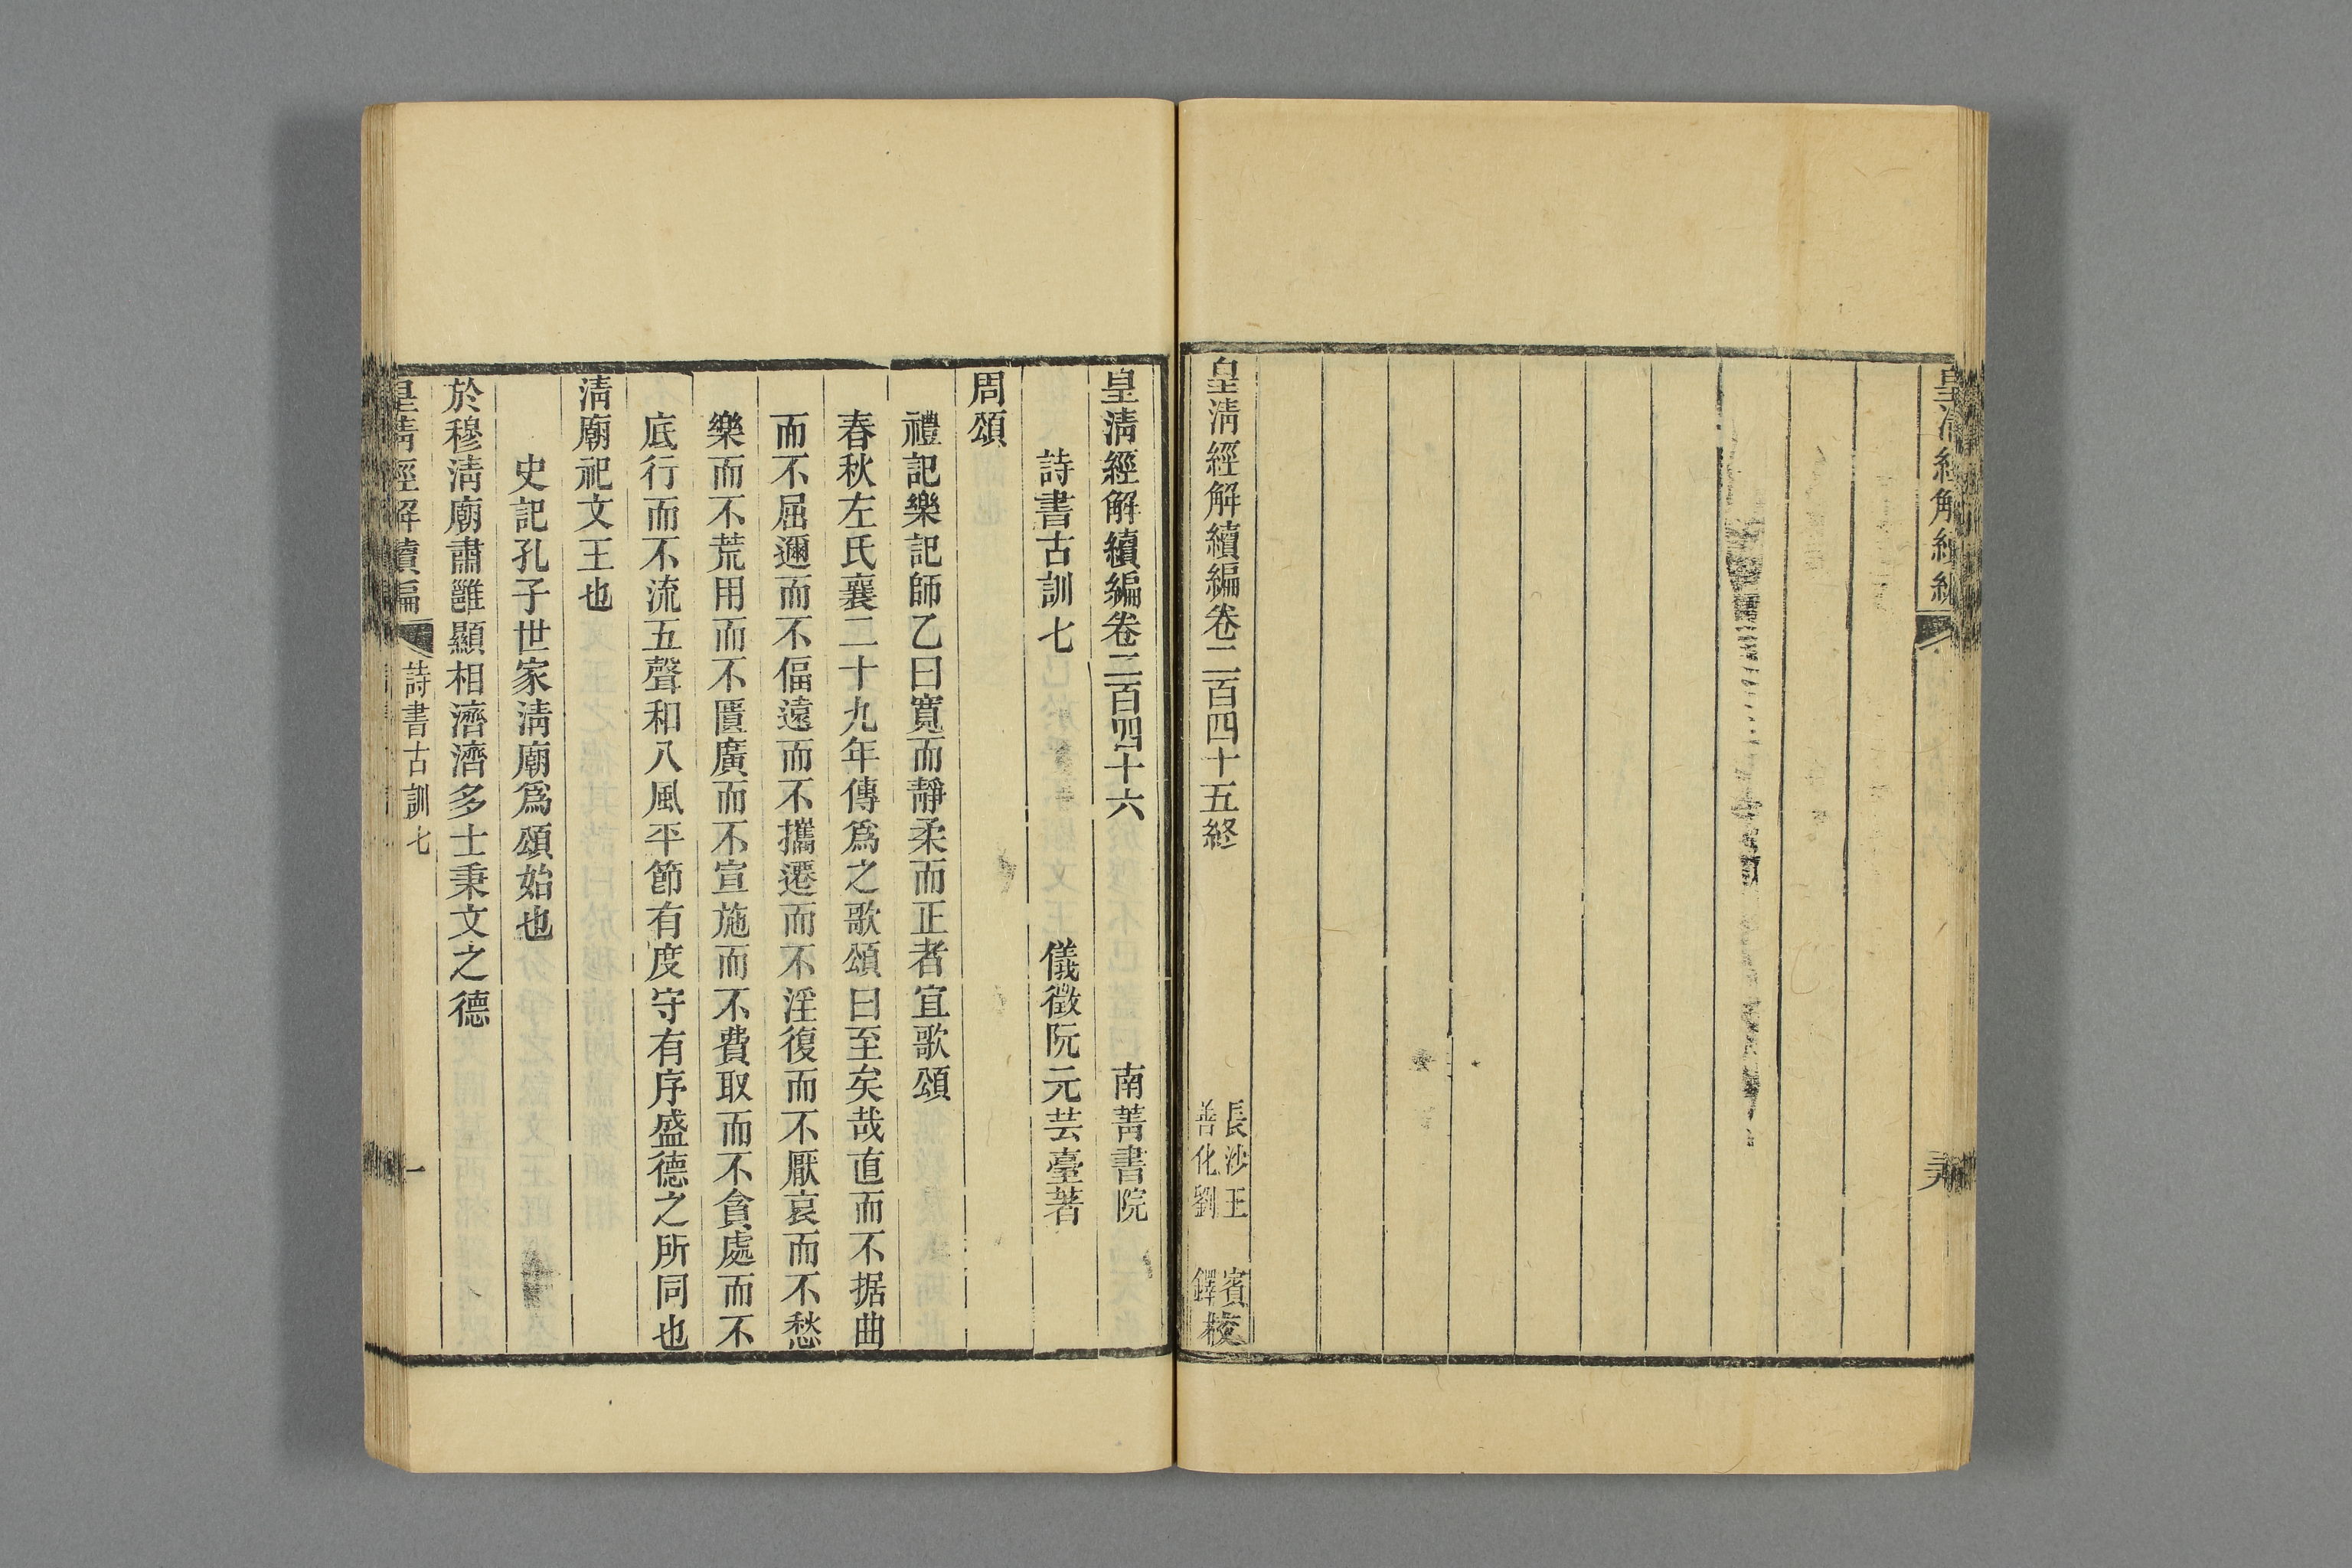 皇清經解續編
皇清經解續編卷二百四十五終
長沙王
善化劉
賓
鐸
校
皇清經解續編卷二百四十六
南菁書院
詩書古訓七
儀徵阮元芸臺著
周頌
禮記樂記師乙曰寬而靜柔而正者宜歌頌
春秋左氏襄二十九年傳爲之歌頌曰至矣哉直而不据曲
而不屈邇而不偪遠而不攜遷而不淫復而不厭哀而不愁
樂而不荒用而不匱廣而不宣施而不費取而不貪處而不
底行而不流五聲和八風平節有度守有序盛德之所同也
清廟祀文王也
史記孔子世家清廟爲頌始也
於穆清廟肅雝顯相濟濟多士秉文之德
皇清經解續編
詩書古訓七
一